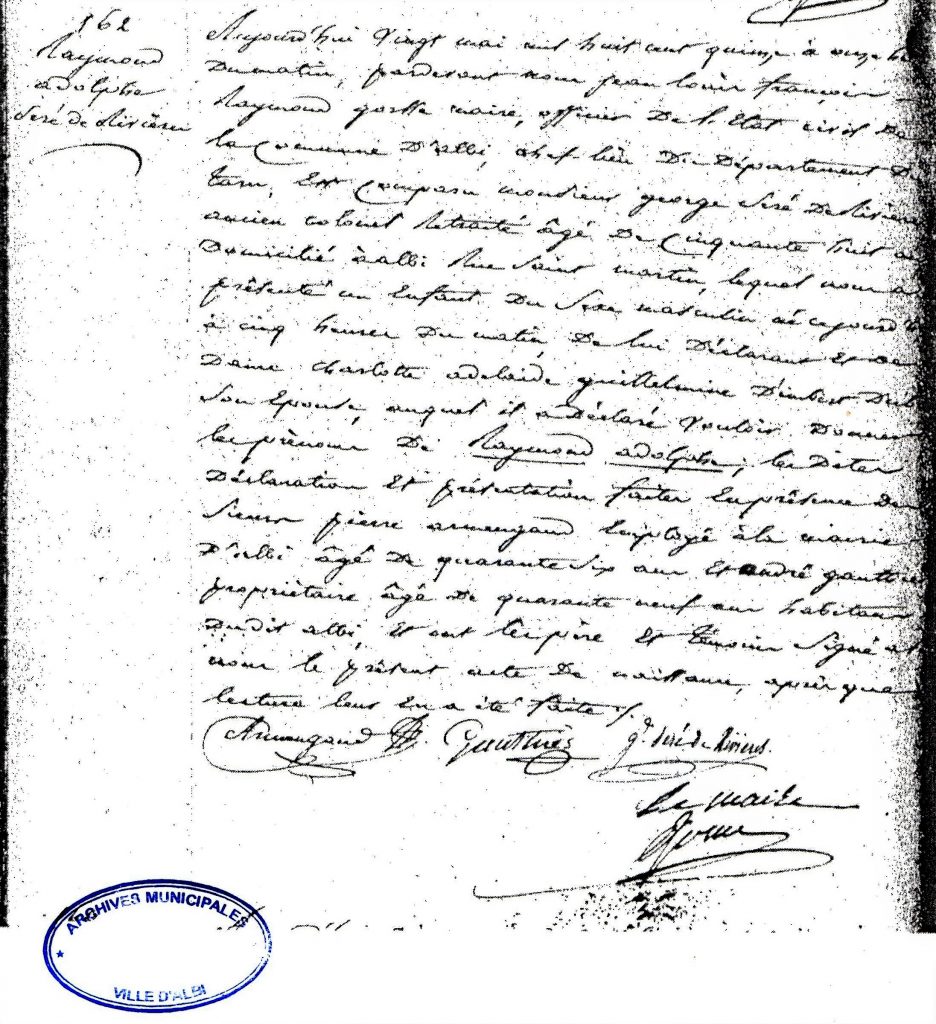 162
Raymond
adolphe
Séré de Rivières
Aujourd'hui vingt mai mil huit cent quinze à onze he
Du matin, pardevant nous jean louis françois
Raymond gorsse maire, officier De l'Etat civil De
la Commune D'albi, chef-lieu Du Département Du
tarn, Est Comparu monsieur george Seré De Riviere
ancien colonel Retraité âgé De Cinquante huit an
Domicilié à albi Rue Saint martin, lequel nous a
présenté un Enfant Du Sexe masculin né cejourd'h
à cinq heures Du matin De lui Déclarant Et De
Dame charlotte adelaïde guillelmine D'imbert Dub
Son Epouse, auquel il a Déclaré Vouloir Donner
les prénoms De Raymond adolphe; les Dites
Déclaration Et présentation faites En présence De
Sieurs pierre armengaud Employé à la mairie
D'albi âgé De quarante Six ans Et andré gauthie
propriétaire âgé De quarante neuf ans habitans
Dudit albi, Et ont les père Et témoins Signé a
nous le présent acte De naissance, après que
lecture leur En a été faite ./.
Armengaud Gauthiés g. seré de Rivieres.
Le maire
Gorsse
ARCHIVES MUNICIPALES
VILLE D'ALBI